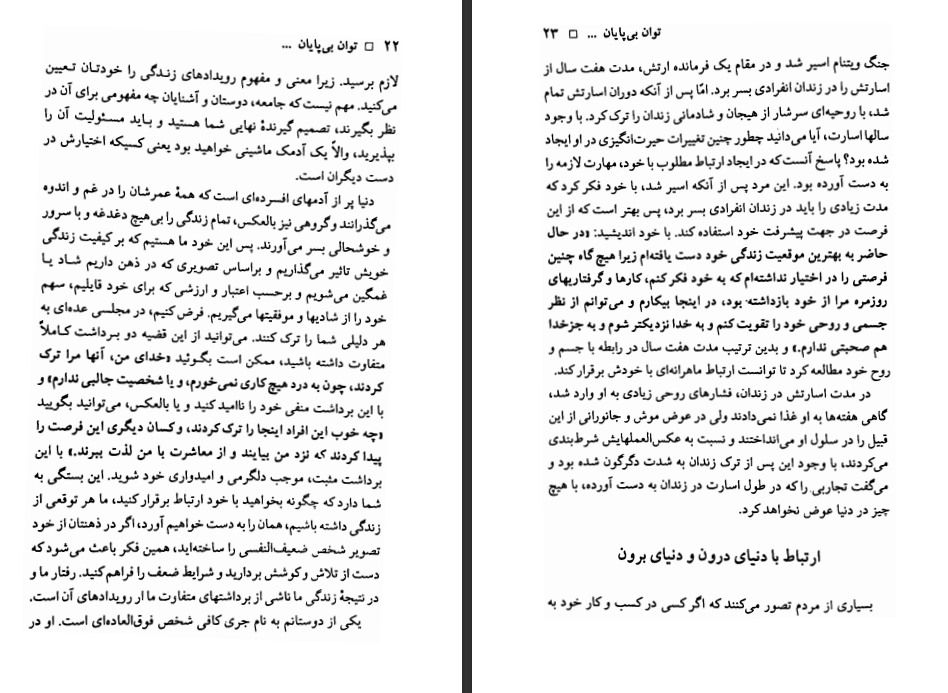 ۲۲ □ توان بی‌پایان ...
لازم برسید. زیرا معنی و مفهوم رویدادهای زندگی را خودتان تعیین
می‌کنید. مهم نیست که جامعه، دوستان و آشنایان چه مفهومی برای آن در
نظر بگیرند، تصمیم گیرندهٔ نهایی شما هستید و باید مسئولیت آن را
بپذیرید، والاّ یک آدمک ماشینی خواهید بود یعنی کسیکه اختیارش در
دست دیگران است.
دنیا پر از آدمهای افسرده‌ای است که همهٔ عمرشان را در غم و اندوه
می‌گذرانند و گروهی نیز بالعکس، تمام زندگی را بی‌هیچ دغدغه و با سرور
و خوشحالی بسر می‌آورند. پس این خود ما هستیم که بر کیفیت زندگی
خویش تاثیر می‌گذاریم و براساس تصویری که در ذهن داریم شاد یا
غمگین می‌شویم و برحسب اعتبار و ارزشی که برای خود قایلیم، سهم
خود را از شادیها و موفقیتها می‌گیریم. فرض کنیم، در مجلسی عده‌ای به
هر دلیلی شما را ترک کنند. می‌توانید از این قضیه دو برداشت کاملاً
متفاوت داشته باشید، ممکن است بگوئید «خدای من، آنها مرا ترک
کردند، چون به درد هیچ کاری نمی‌خورم، و یا شخصیت جالبی ندارم» و
با این برداشت منفی خود را ناامید کنید و یا بالعکس، می‌توانید بگویید
«چه خوب این افراد اینجا را ترک کردند، و کسان دیگری این فرصت را
پیدا کردند که نزد من بیایند و از معاشرت با من لذت ببرند.» با این
برداشت مثبت، موجب دلگرمی و امیدواری خود شوید. این بستگی به
شما دارد که چگونه بخواهید با خود ارتباط برقرار کنید، ما هر توقعی از
زندگی داشته باشیم، همان را به دست خواهیم آورد، اگر در ذهنتان از خود
تصویر شخص ضعیف‌النفسی را ساخته‌اید، همین فکر باعث می‌شود که
دست از تلاش و کوشش بردارید و شرایط ضعف را فراهم کنید. رفتار ما و
در نتیجهٔ زندگی ما ناشی از برداشتهای متفاوت ما از رویدادهای آن است.
یکی از دوستانم به نام جری کافی شخص فوق‌العاده‌ای است. او در
توان بی‌پایان ... □ ۲۳
جنگ ویتنام اسیر شد و در مقام یک فرمانده ارتش، مدت هفت سال از
اسارتش را در زندان انفرادی بسر برد. امّا پس از آنکه دوران اسارتش تمام
شد، با روحیه‌ای سرشار از هیجان و شادمانی زندان را ترک کرد. با وجود
سالها اسارت، آیا می‌دانید چطور چنین تغییرات حیرت‌انگیزی در او ایجاد
شده بود؟ پاسخ آنست که در ایجاد ارتباط مطلوب با خود، مهارت لازمه را
به دست آورده بود. این مرد پس از آنکه اسیر شد، با خود فکر کرد که
مدت زیادی را باید در زندان انفرادی بسر برد، پس بهتر است که از این
فرصت در جهت پیشرفت خود استفاده کند. با خود اندیشید: «در حال
حاضر به بهترین موقعیت زندگی خود دست یافته‌ام زیرا هیچ گاه چنین
فرصتی را در اختیار نداشته‌ام که به خود فکر کنم، کارها و گرفتاریهای
روزمره مرا از خود بازداشته بود، در اینجا بیکارم و می‌توانم از نظر
جسمی و روحی خود را تقویت کنم و به خدا نزدیکتر شوم و به جزخدا
هم صحبتی ندارم.» و بدین ترتیب مدت هفت سال در رابطه با جسم و
روح خود مطالعه کرد تا توانست ارتباط ماهرانه‌ای با خودش برقرار کند.
در مدت اسارتش در زندان، فشارهای روحی زیادی به او وارد شد،
گاهی هفته‌ها به او غذا نمی‌دادند ولی در عوض موش و جانورانی از این
قبیل را در سلول او می‌انداختند و نسبت به عکس‌العملهایش شرط‌بندی
می‌کردند، با وجود این پس از ترک زندان به شدت دگرگون شده بود و
می‌گفت تجاربی را که در طول اسارت در زندان به دست آورده، با هیچ
چیز در دنیا عوض نخواهد کرد.
ارتباط با دنیای درون و دنیای برون
بسیاری از مردم تصور می‌کنند که اگر کسی در کسب و کار خود به